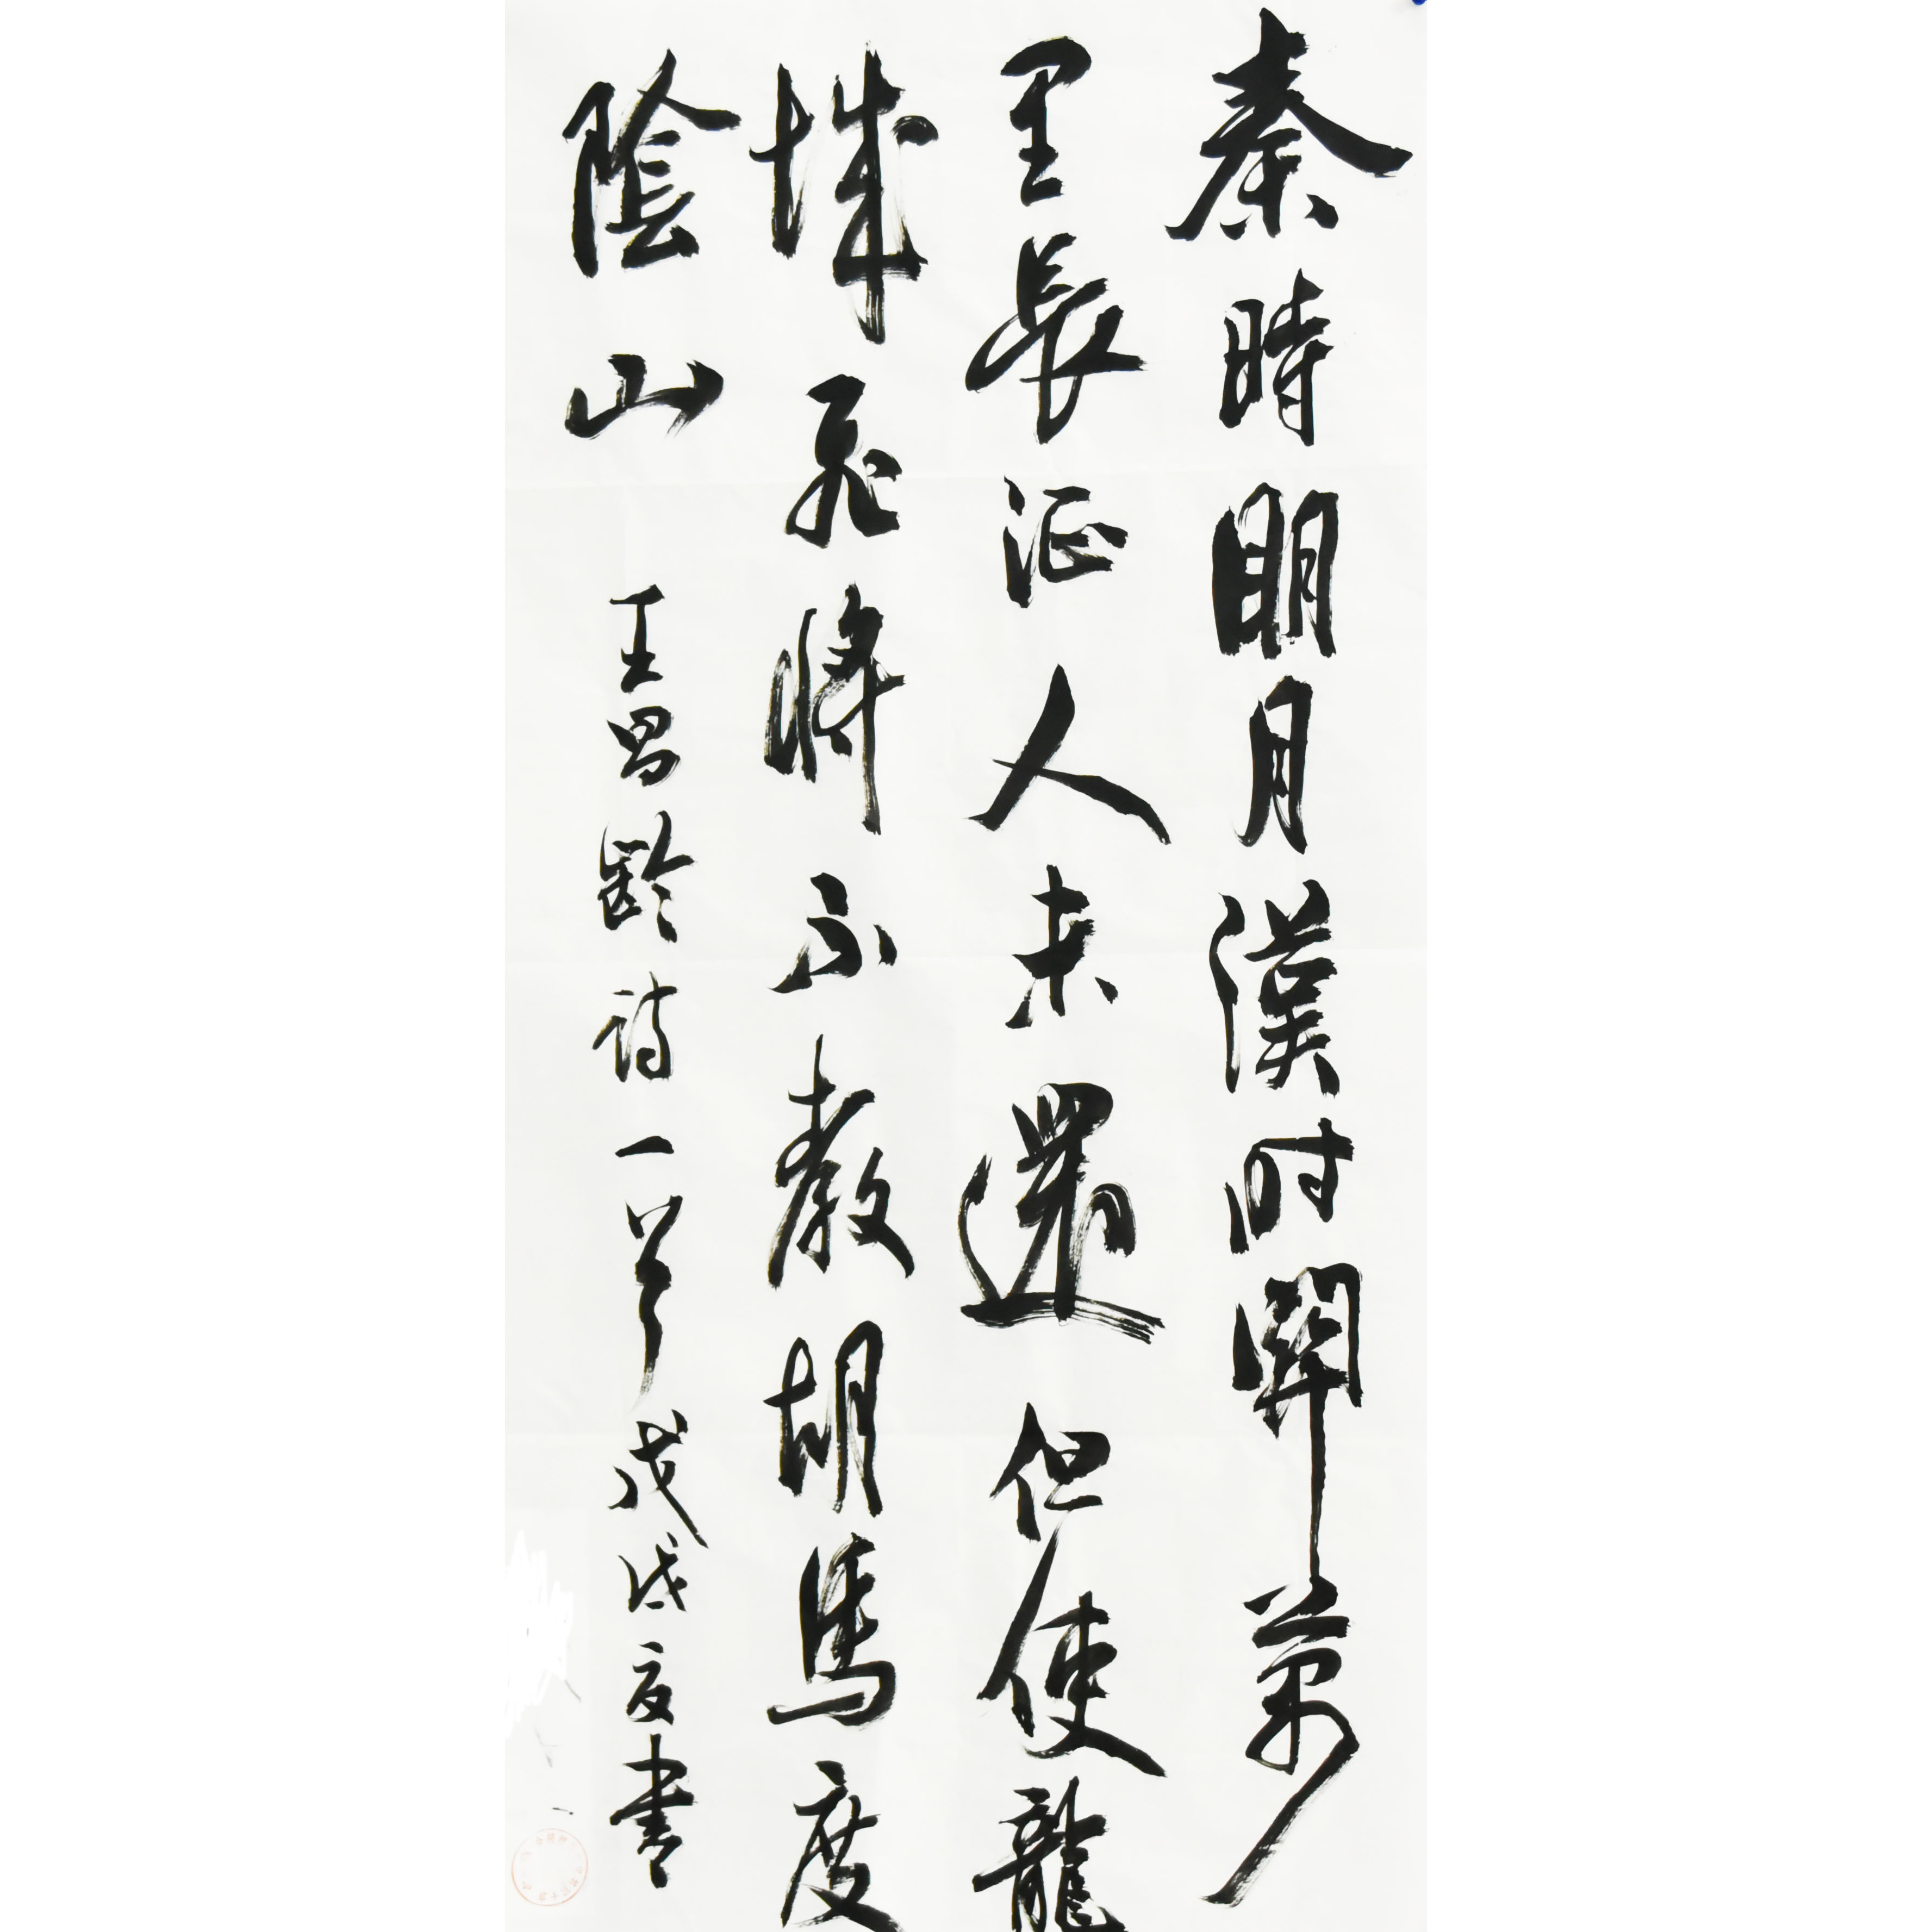 秦時明月漢时關萬
里長征人未還但使龍
城飛將不教胡馬度
陰山
王昌齡詩一首戊戌夏書